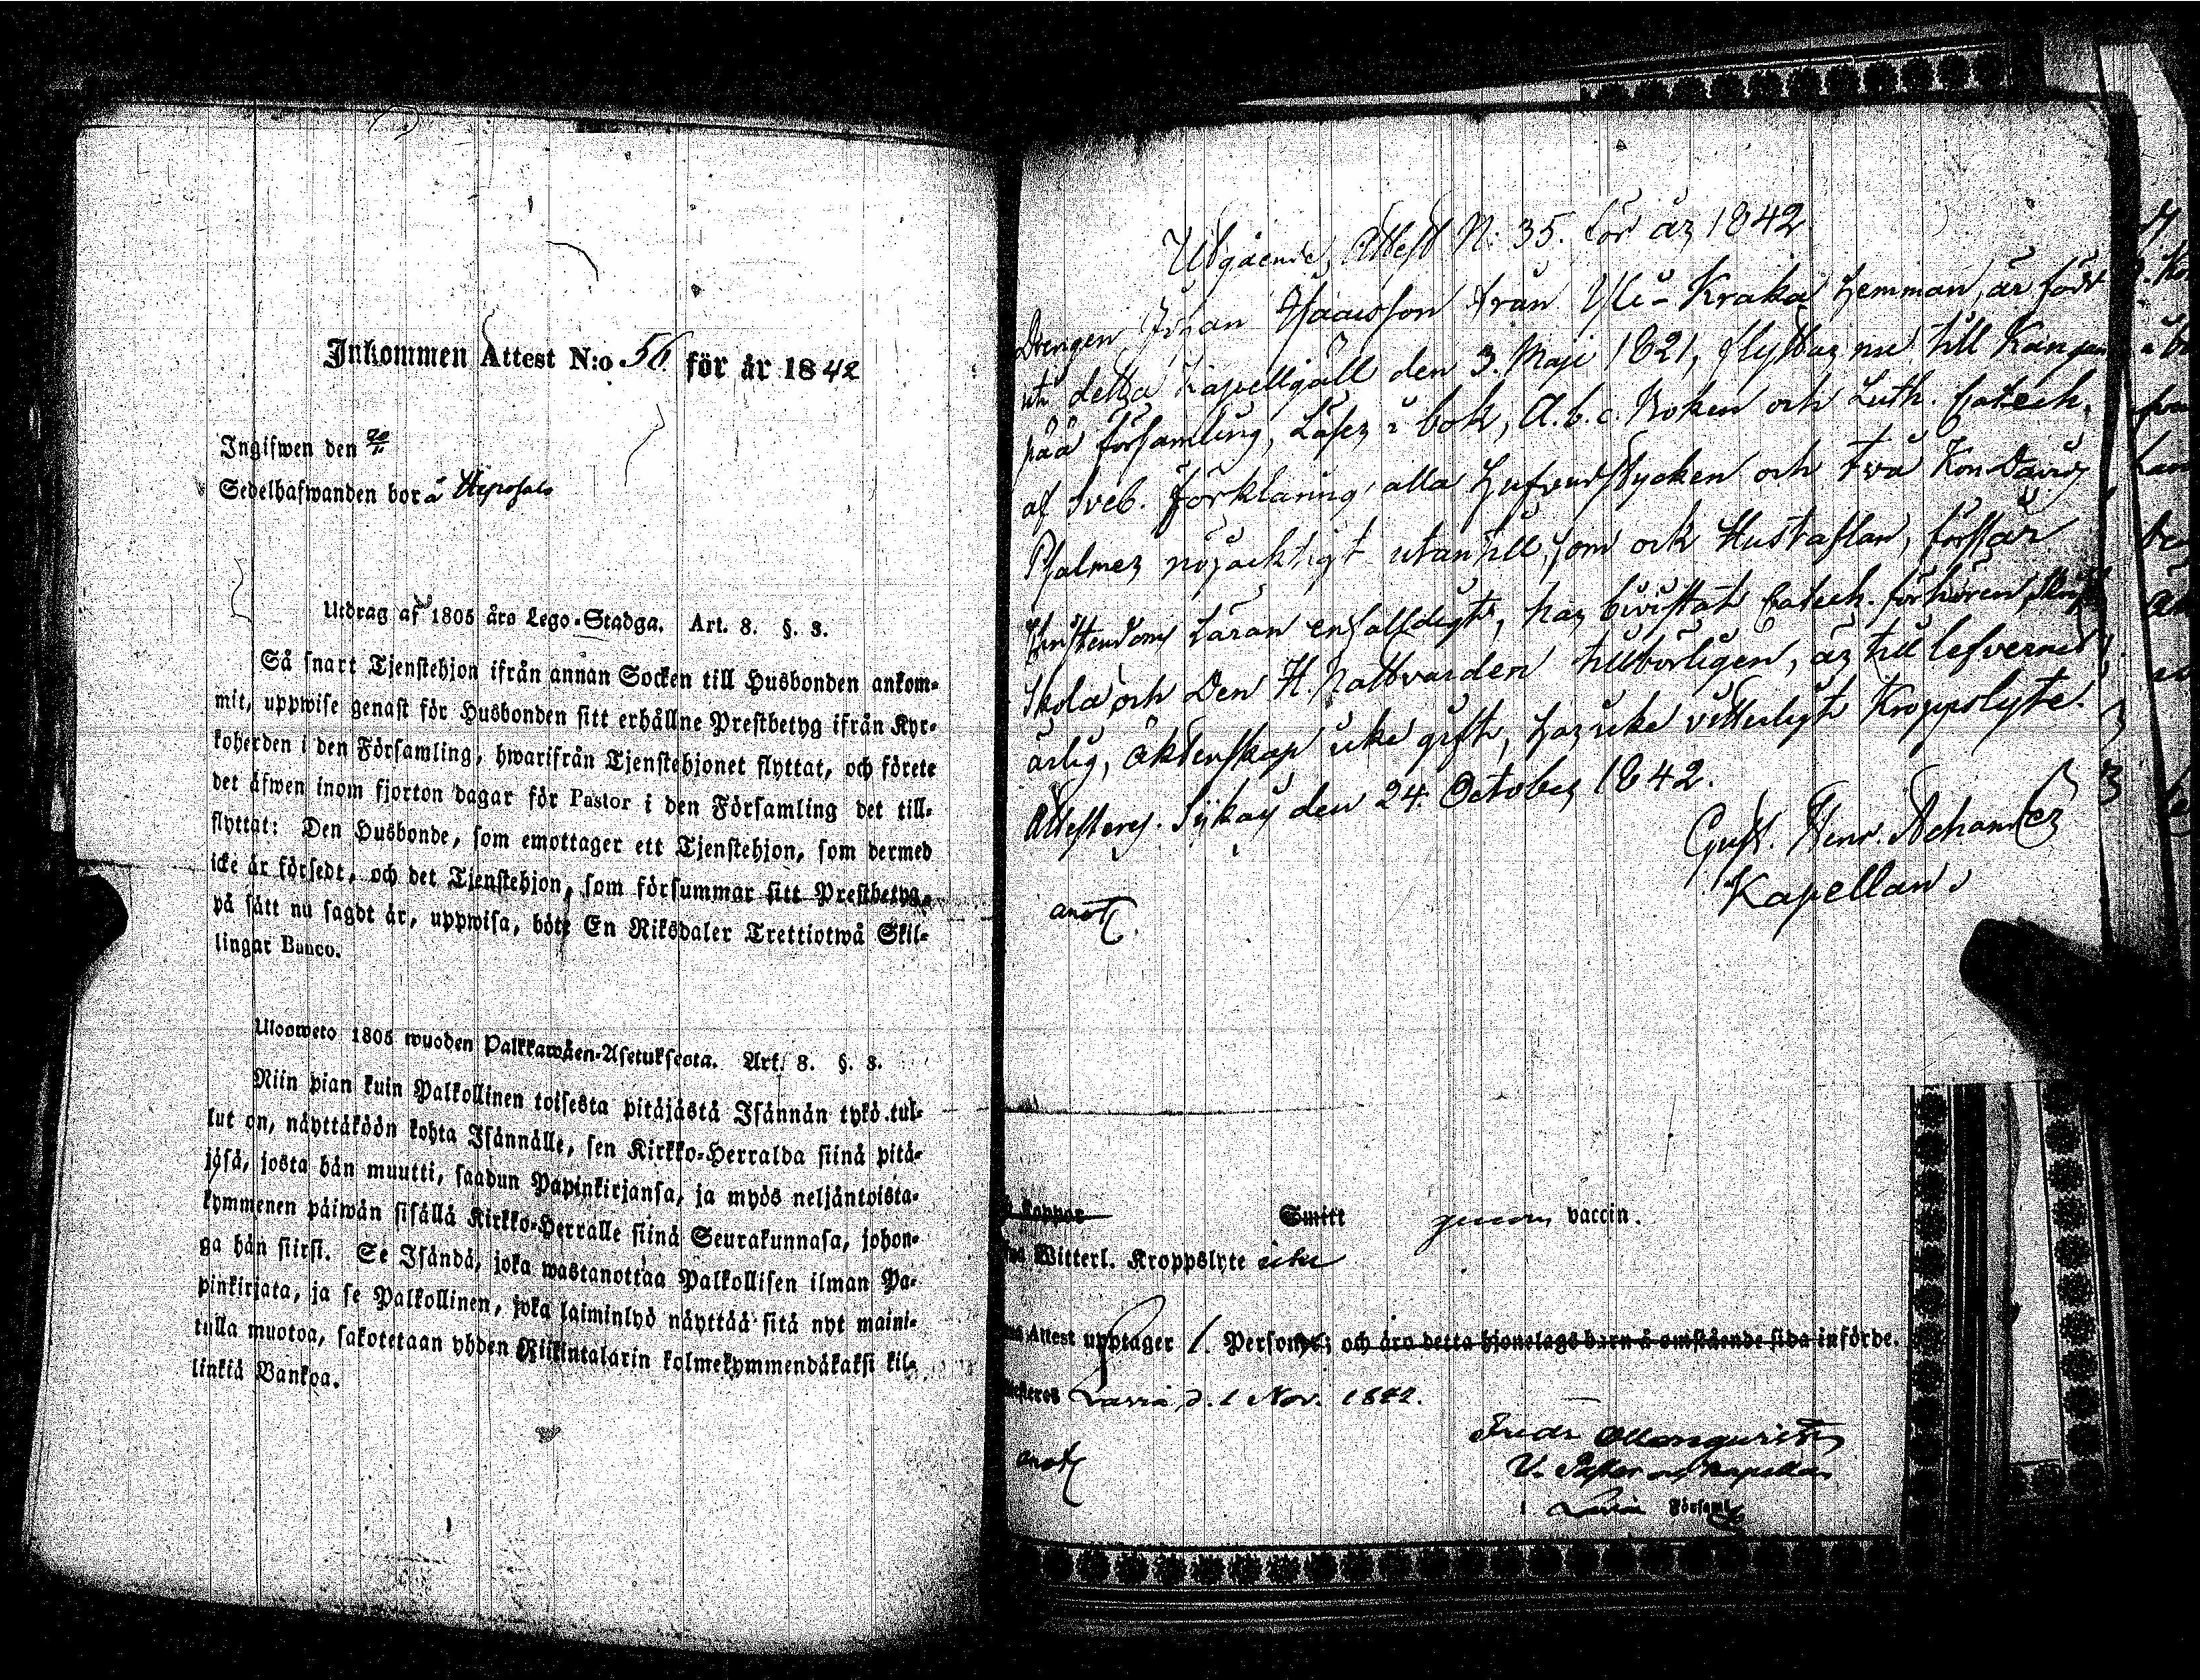 Inkommen Attest N:o 56 för år 1842
Ingifwen den
Sedelhafwanden bor å Heposalo
Utdrag af 1805 års Lego-Stadga. Art. 8. §. 3.
Så snart Tjenstehjon ifrån annan Socken till Husbonden ankom-
mit, uppwise genast för Husbonden sitt erhållne Prestbetyg ifrån Kyr-
koherden i den Församling, hwarifrån Tjenstehjonet flyttat, och förete
det äfwen inom fjorton dagar för Pastor i den Församling det till-
flyttat: Den Husbonde, som emottager ett Tjenstehjon, som dermed
icke är försedt, och det Tjenstehjon, som försummar sitt Prestbetyg,
på sätt nu sagdt är, uppwisa, böte En Riksdaler Trettiotwå Skil-
lingar Banco.
Ulosweto 1805 wuoden Palkkawäen-Asetuksesta. Art. 8. §. 3.
Niin pian kuin Palkollinen toisesta pitäjästä Isännän tykö tul-
lut on, näyttäköön kohta Isännälle, sen Kirkko-Herralda siinä pitä-
jäsä, josta hän muutti, saadun Papinkirjansa, ja myös neljäntoista-
kymmenen päiwän sisällä Kirkko-Herralle siinä Seurakunnasa, johon-
ga hän siirsi. Se Isändä, joka wastanottaa Palkollisen ilman Pa-
pinkirjata, ja se Palkollinen, joka laiminlyö näyttää sitä nyt maini-
tulla muotoa, sakotetaan yhden Riikintalarin kolmekymmendäkaksi kil-
linkiä Bankoa.
Utgående Attest N: 35. för år 1842
Drengen Johan Isaacsson från Yli-Kraka Hemman, är född
uti detta Kapellgäll den 3. Maji 1821, flyttar nu till Kangan
pää församling, Läser i bok, A.b.c. Boken och Luth. Catech.
af Sveb. Förklaring, alla Hufvudstycken och två Kon. Davids
Psalmer nöjachtigt utantill, som ock Hustaflan, förstår
Christendoms Läran enfalldigt, har bivistat Catech. förhören,
Skola och Den H. Nattvarden tillbörligen, är till lefvernet
ärlig, äktenskap icke gift, har icke vitterligt Kroppslyte.
Attesterar. den 24 October 1842.
Gust. Henr.
Kapellan
anot.
koppor Smitt genom vaccin.
Witterl. Kroppslyte icke
Attest upptager 1. Person; och äro detta hjonelags barn å omstående sida införde.
Lavia d. 1 Nov. 1842.
anot
V. Pastor och Kapellan
i Lavia Församl